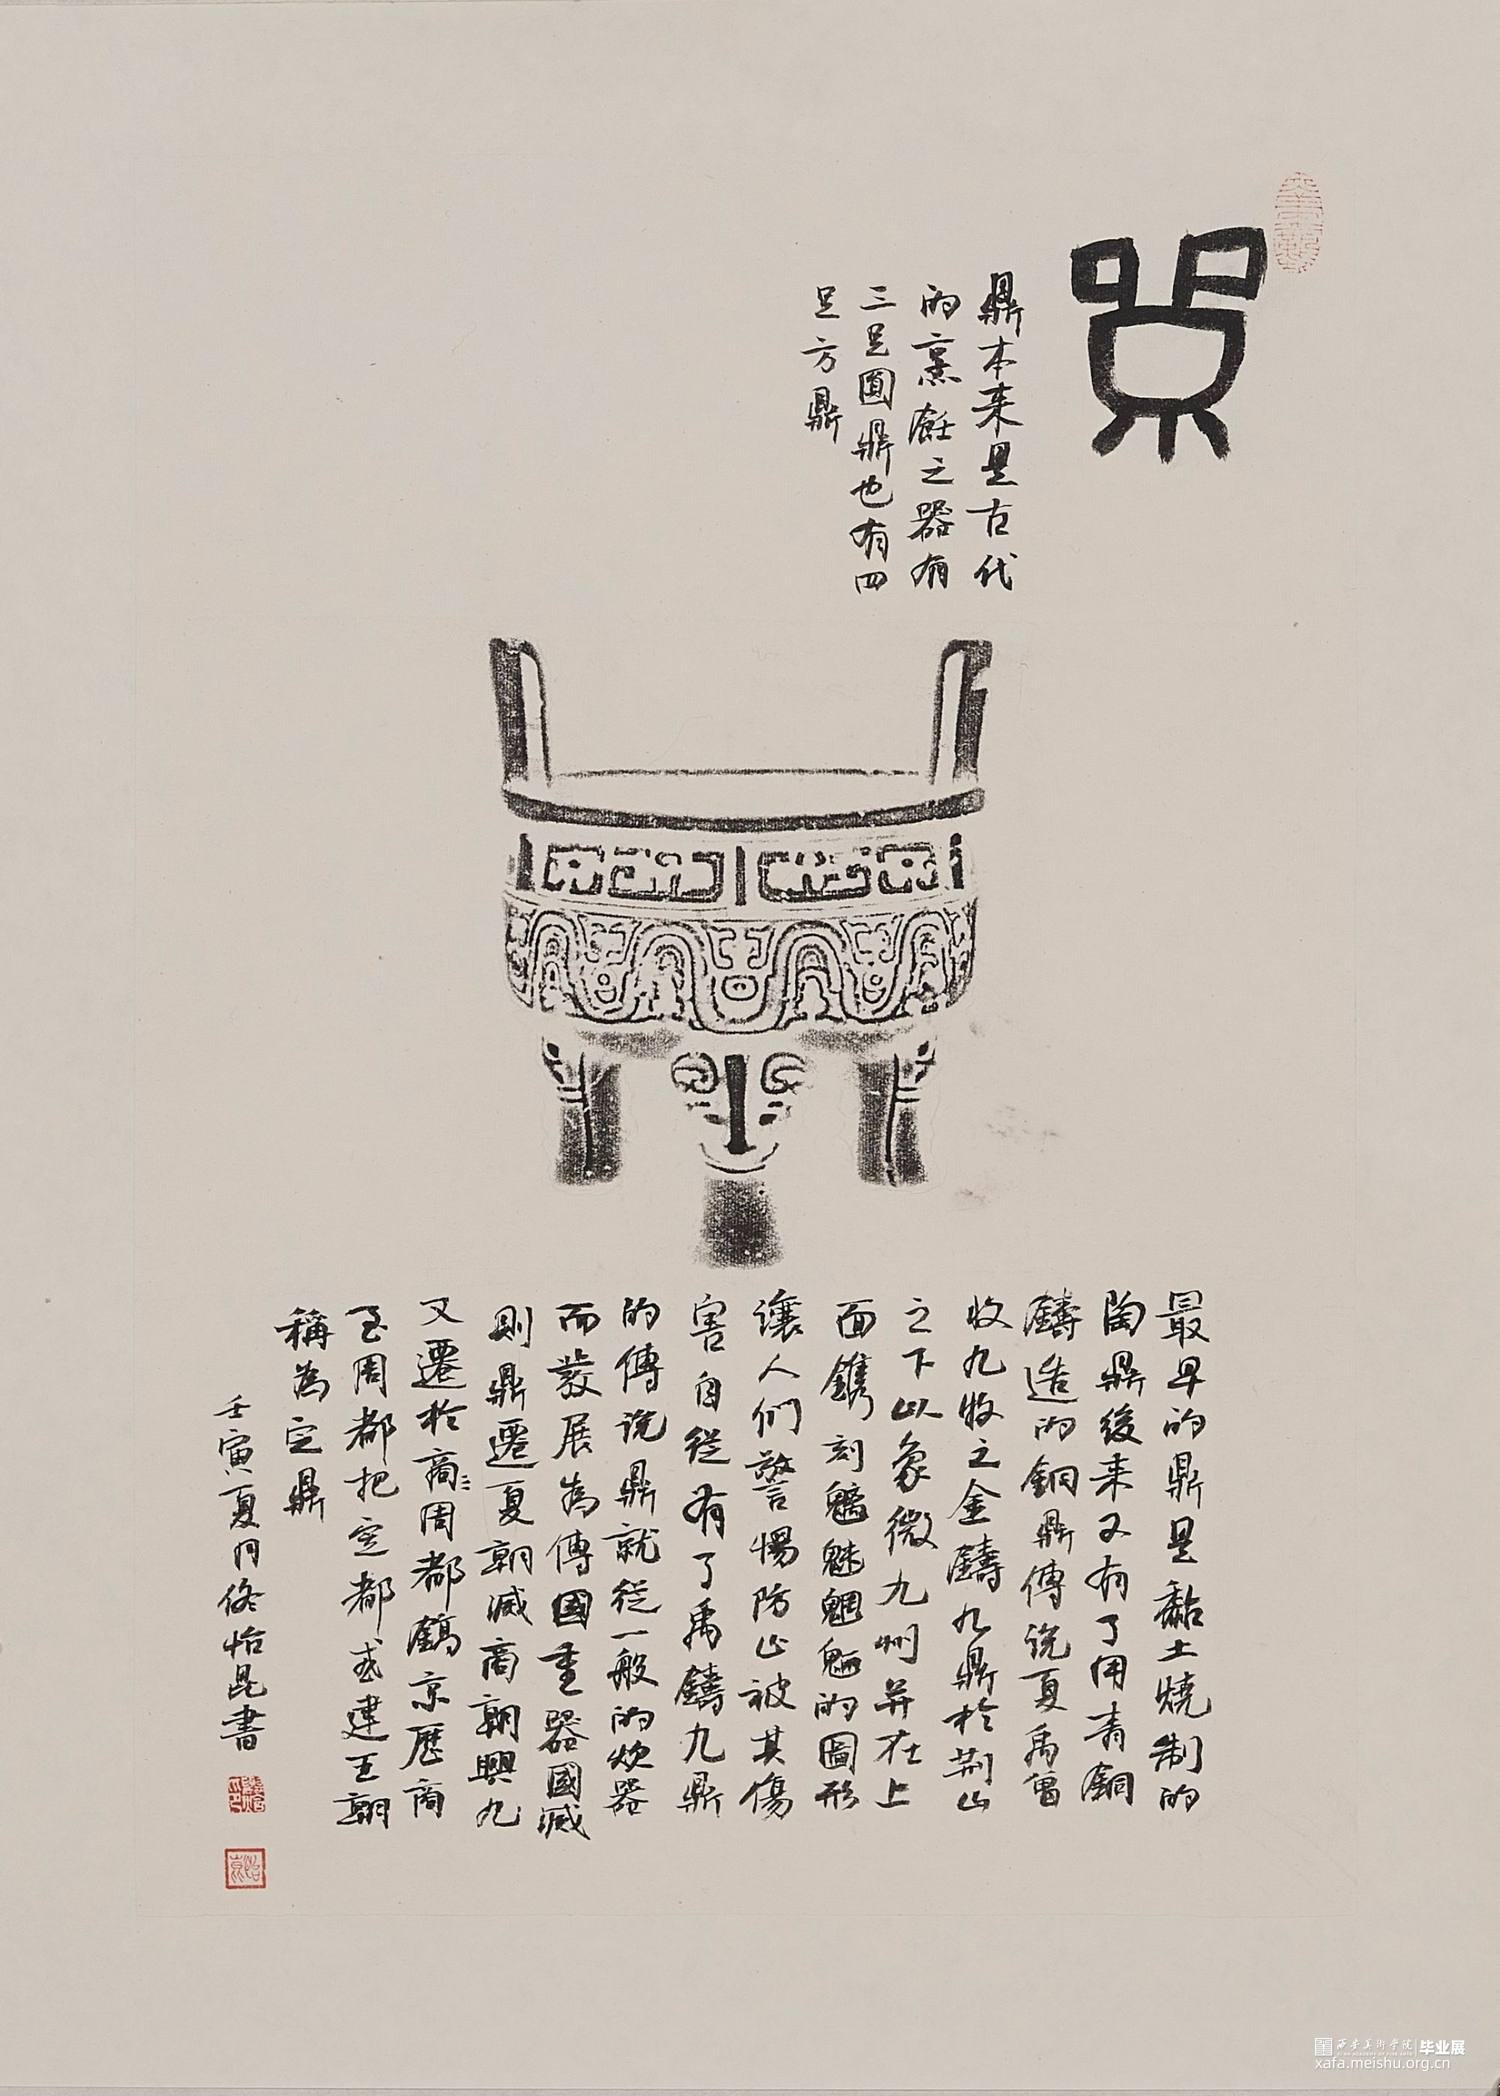 鼎
鼎本来是古代
的烹飪之器有
三足圓鼎也有四
足方鼎
最早的鼎是黏土燒制的
陶鼎後来又有了用青銅
鑄造的銅鼎傳说夏禹曾
收九牧之金鑄九鼎於荆山
之下以象徵九州并在上
面鐫刻魑魅魍魎的圖形
讓人们警惕防止被其傷
害自從有了禹鑄九鼎
的傳说鼎就從一般的炊器
而發展為傳國重器國滅
則鼎遷夏朝滅商朝興九
又遷於商〻周都鎬京歷商
至周都把定都或建王朝
稱為定鼎
壬寅夏月佟怡昆書
西安美術学院 毕业展
xafa.meishu.org.cn